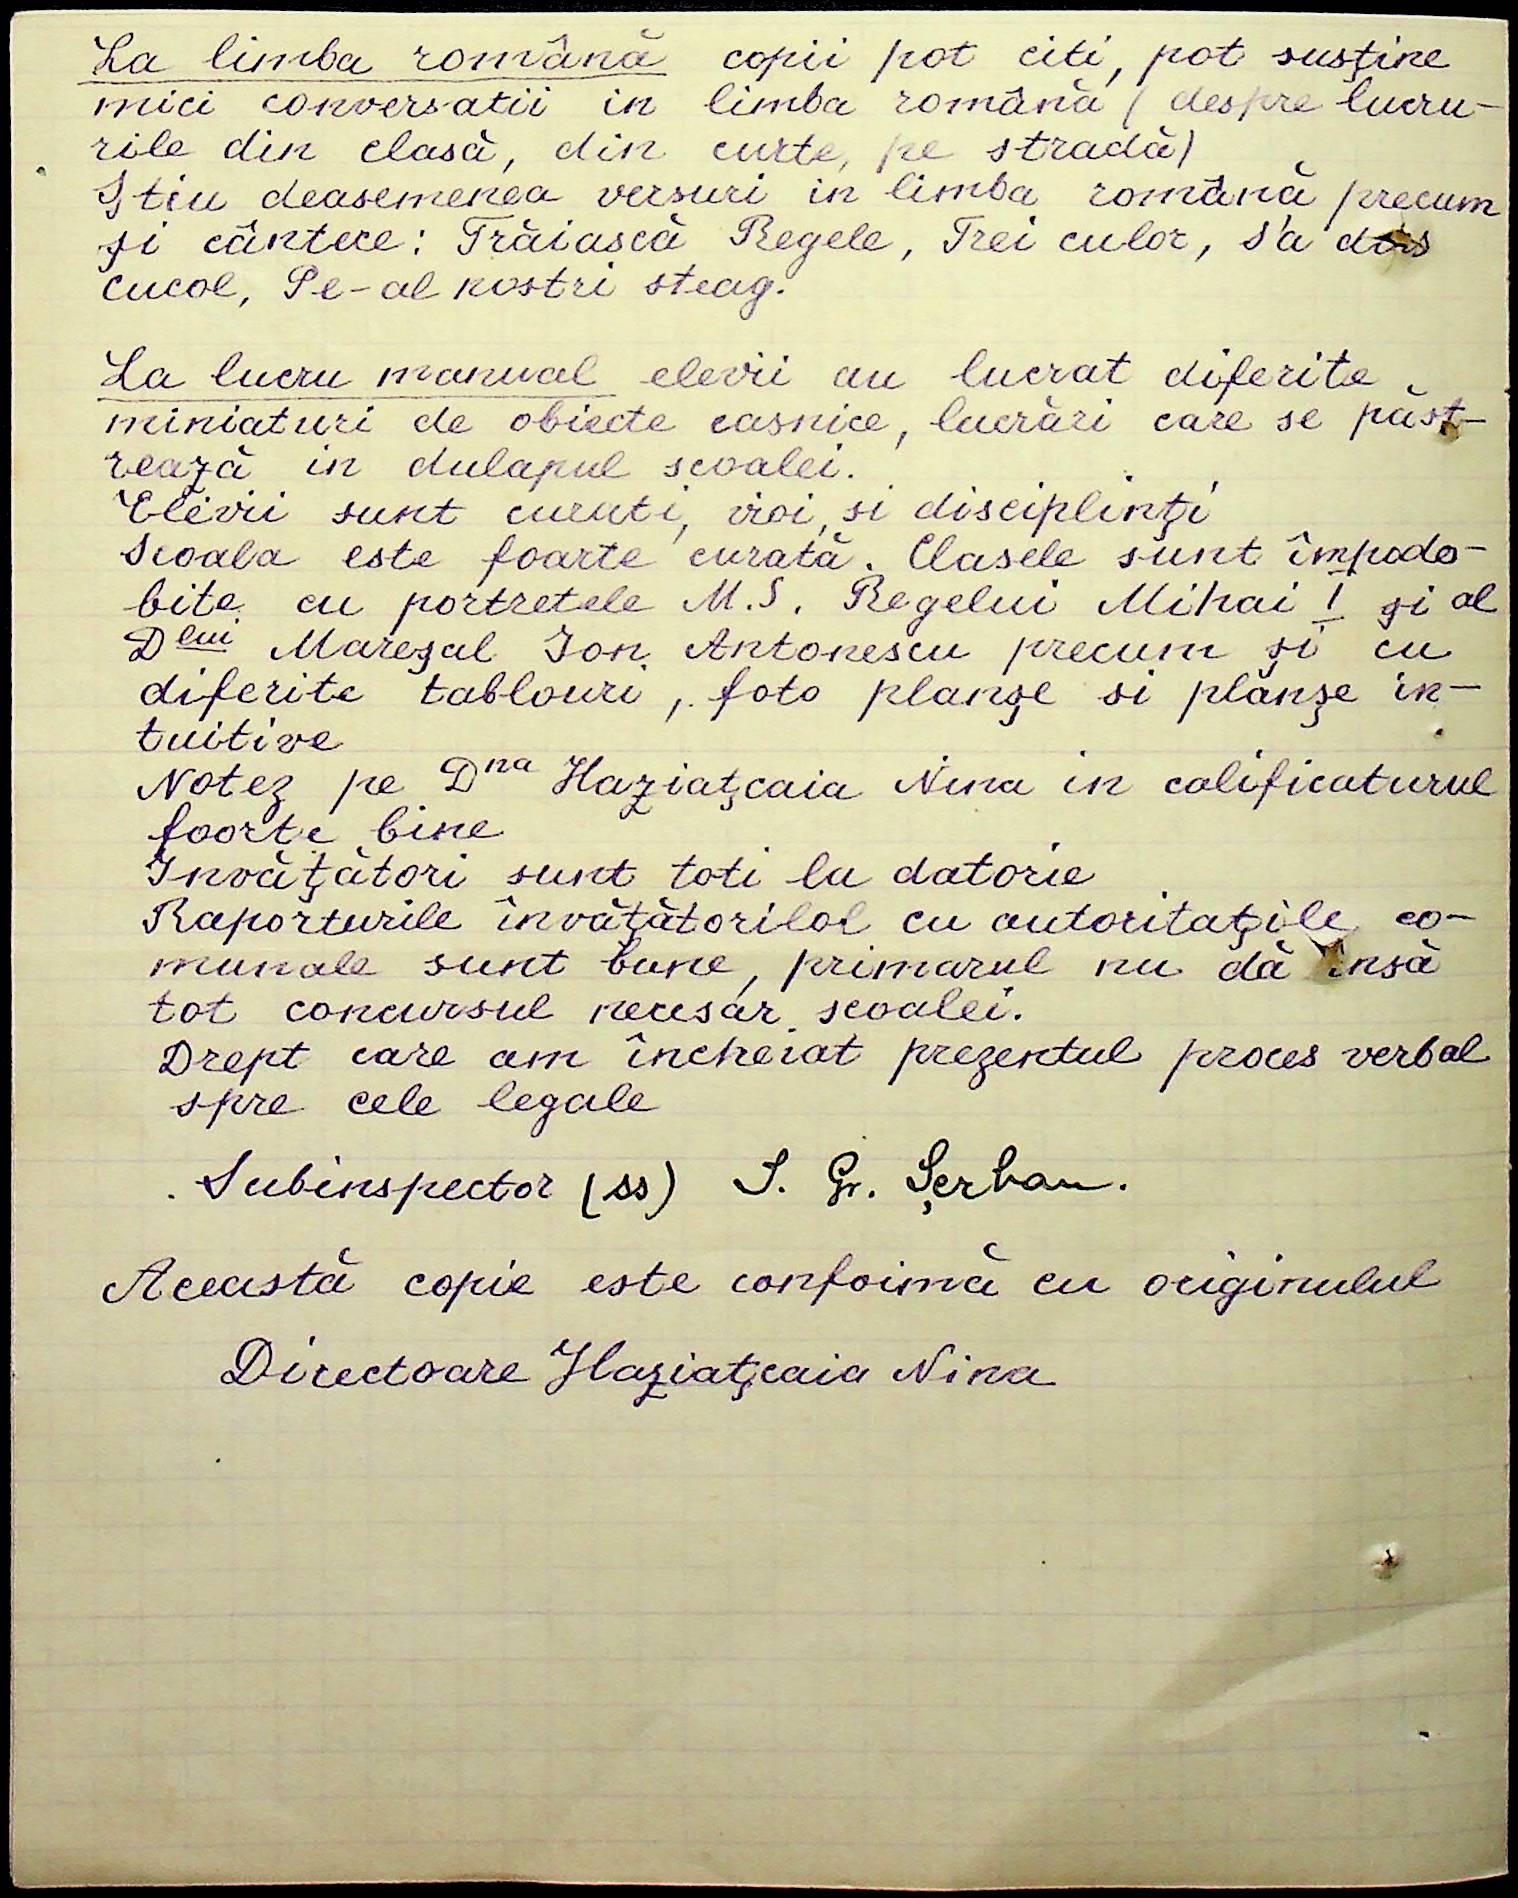 La limba română copii pot citi, pot susţine
mici conversatii in limba română (despre lucru-
rile din clasă, din curte, pe stradă)
Ştiu deasemenea versuri in limba română precum
şi cântece: Trăiască Regele, Trei culor, s'a dus
cucol, Pe-al nostri steag.
La lucru manual elevii au lucrat diferite
miniaturi de obiecte casnice, lucrări care se păst-
rează in dulapul scoalei.
Elevii sunt curati, vioi, si disciplinţi
Scoala este foarte curată. Clasele sunt împodo-
bite cu portretele M.S. Regelui Mihai I şi al
Dlui Mareşal Ion Antonescu precum şi cu
diferite tablouri, foto planşe si planşe in-
tuitive
Notez pe Dna Haziaţcaia Nina in calificaturul
foorte bine
Invăţători sunt toti la datorie
Raporturile învăţătorilol cu autoritaţile co-
munale sunt bune, primarul nu dă insă
tot concursul necesar scoalei.
Drept care am încheiat prezentul proces verbal
spre cele legale
Subinspector (ss) I. Gr. Şerban.
Această copie este conformă cu originulul
Directoare Haziaţcaia Nina